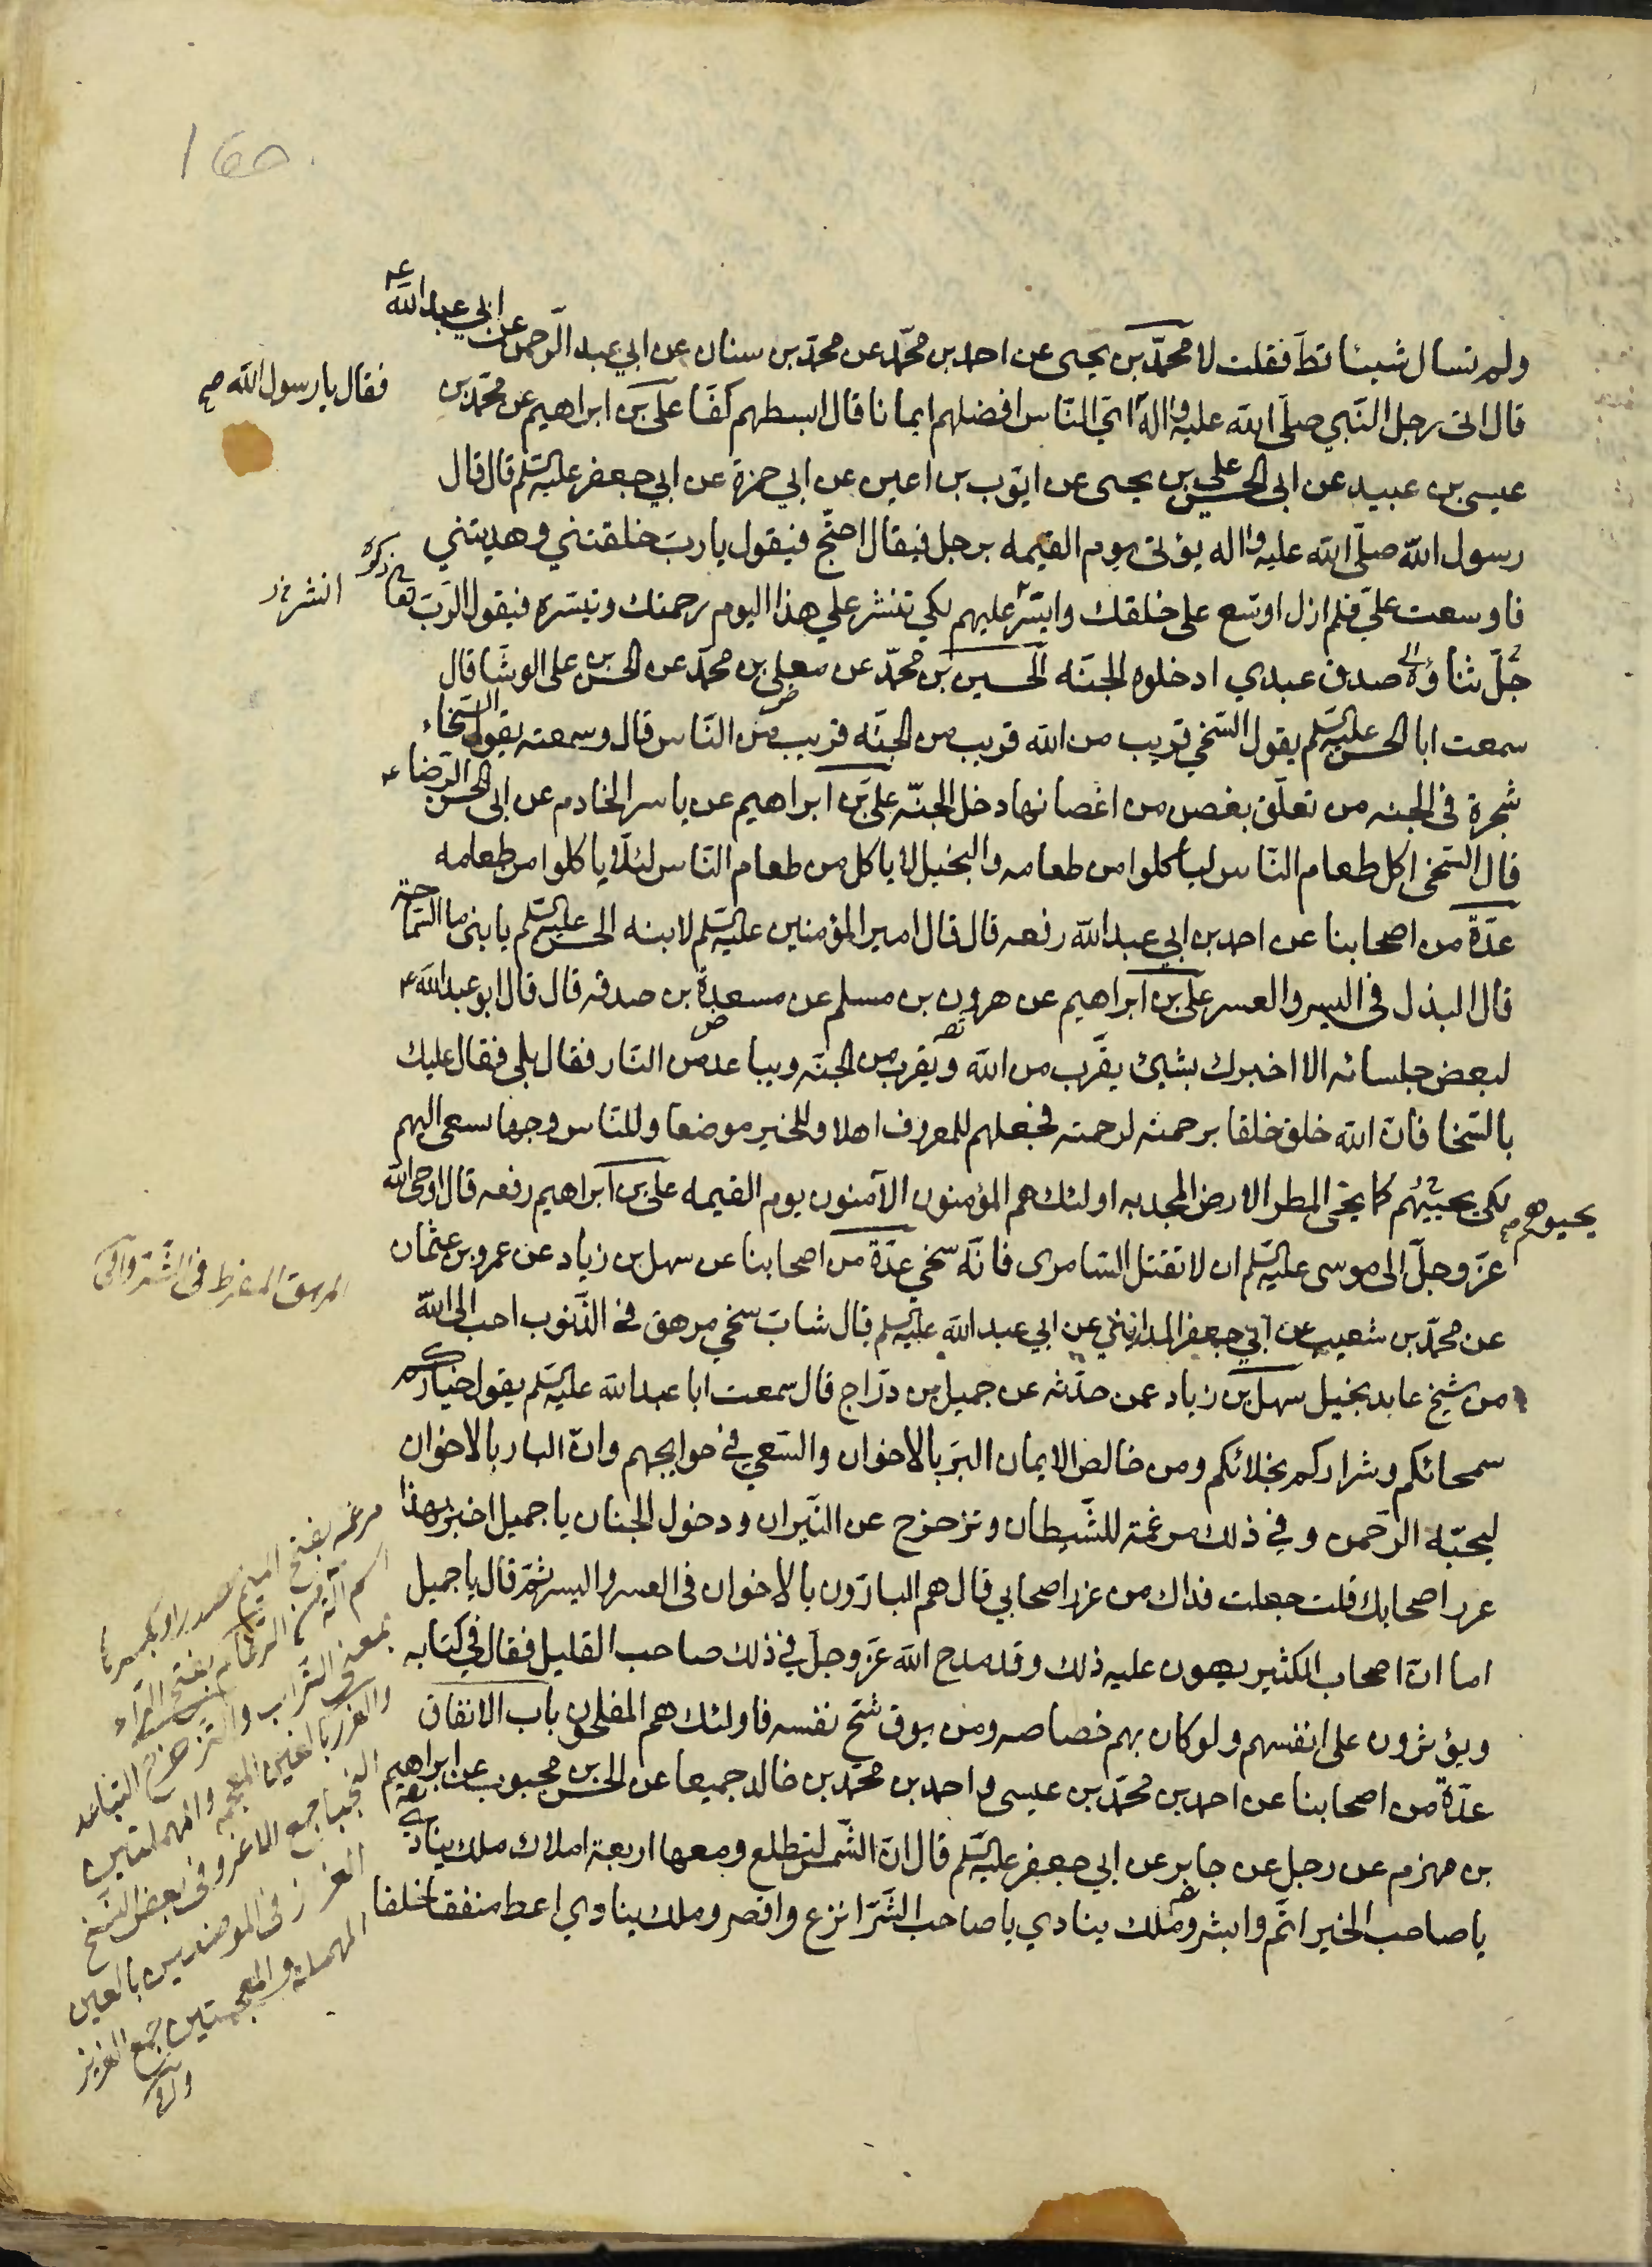 ولم تسال شيئا قط فقلت لا محمد بن يحيى عن احمد بن محمد عن محمد بن سنان عن ابي عبد الرحمن عن ابي عبد الله ع
قال اتى رجل النبي صلى الله عليه واله اي الناس افضلهم ايمانا قال ابسطهم كفا علي بن ابراهيم عن محمد بن
فقال يا رسول الله صح
عيسى بن عبيد عن ابي الحسن علي بن يحيى عن ايوب بن اعين عن ابي حمزة عن ابي جعفر عليه السلم قال قال
رسول الله صلى الله عليه واله يؤتى يوم القيمه برجل فيقال احتج فيقول يا رب خلقتني وهديتني
فاوسعت علي فلم ازل اوسع على خلقك وايسر عليهم لكي تنشر علي هذا اليوم رحمتك وتيسره فيقول الرب تعالى ذكره
جل ثناؤه صدق عبدي ادخلوه الجنه الحسين بن محمد عن معلى بن محمد عن الحسن بن علي الوشا قال
سمعت ابا الحسن عليه السلم يقول السخي قريب من الله قريب من الجنه قريب من الناس قال وسمعته يقول السخاء
شجرة في الجنه من تعلق بغصن من اغصانها دخل الجنه علي بن ابراهيم عن ياسر الخادم عن ابي الحسن الرضا ع
قال السخي اكل طعام الناس لياكلوا من طعامه والبخيل لا ياكل من طعام الناس لئلا ياكلوا من طعامه
عدة من اصحابنا عن احمد بن ابي عبد الله رفعه قال قال امير المؤمنين عليه السلم لابنه الحسن عليه السلم يا بني ما السماحة
قال البذل في اليسر والعسر علي بن ابراهيم عن هرون بن مسلم عن مسعدة بن صدقه قال قال ابو عبد الله ع
لبعض جلسائه الا اخبرك بشيئ يقرب من الله ويقرب من الجنه ويباعد من النار فقال بلى فقال عليك
بالسخا فان الله خلق خلقا برحمته لرحمته فجعلهم للمعروف اهلا وللخير موضعا وللناس وجها يسعى اليهم
لكي يحييهم كما يحيي المطر الارض المجدبه اولئك هم المؤمنون الآمنون يوم القيمه علي بن ابراهيم رفعه قال اوحى الله
يحيوهم
عز وجل الى موسى عليه السلم ان لا تقتل السامري فانه سخي عدة من اصحابنا عن سهل بن زياد عن عمرو بن عثمان
عن محمد بن شعيب عن ابي جعفر المدائني عن ابي عبد الله عليه السلم قال شاب سخي مرهق في الذنوب احب الى الله
من شيخ عابد بخيل سهل بن زياد عمن حدثه عن جميل بن دراج قال سمعت ابا عبد الله عليه السلم يقول خياركم
سمحائكم وشراركم بخلائكم ومن خالص الايمان البر بالاخوان والسعي في حوايجهم وان البار بالاخوان
ليحبه الرحمن وفي ذلك مرغمة للشيطان وتزحزح عن النيران ودخول الجنان يا جميل اخبر بهذا
غرر اصحابك قلت جعلت فداك من غرر اصحابي قال هم البارون بالاخوان في العسر واليسر ثم قال يا جميل
اما ان اصحاب الكثير يهون عليه ذلك وقد مدح الله عز وجل في ذلك صاحب القليل فقال في كتابه
ويؤثرون على انفسهم ولو كان بهم خصاصه ومن يوق شح نفسه فاولئك هم المفلحون باب الانفاق
عدة من اصحابنا عن احمد بن محمد بن عيسى واحمد بن محمد بن خالد جميعا عن الحسن بن محبوب عن ابراهيم
بن مهزم عن رجل عن جابر عن ابي جعفر عليه السلم قال ان الشمس لتطلع ومعها اربعة املاك ملك ينادي
يا صاحب الخير اتم وابشر وملك ينادي يا صاحب الشر انزع واقصر وملك ينادي اعط منفقا خلفا
المرهق المفرط في الشر وافي
مرغمه بفتح الميم مصدر او بكسرها
اسم آلة من الرغام بفتح الراء
بمعنى التراب والتزحزح التباعد
والغرر بالغين المعجمه والمهملتين
النجبا جمع الاغر وفي بعض النسخ
العزز في الموضعين بالعين
المهمله والمعجمتين جمع العزيز